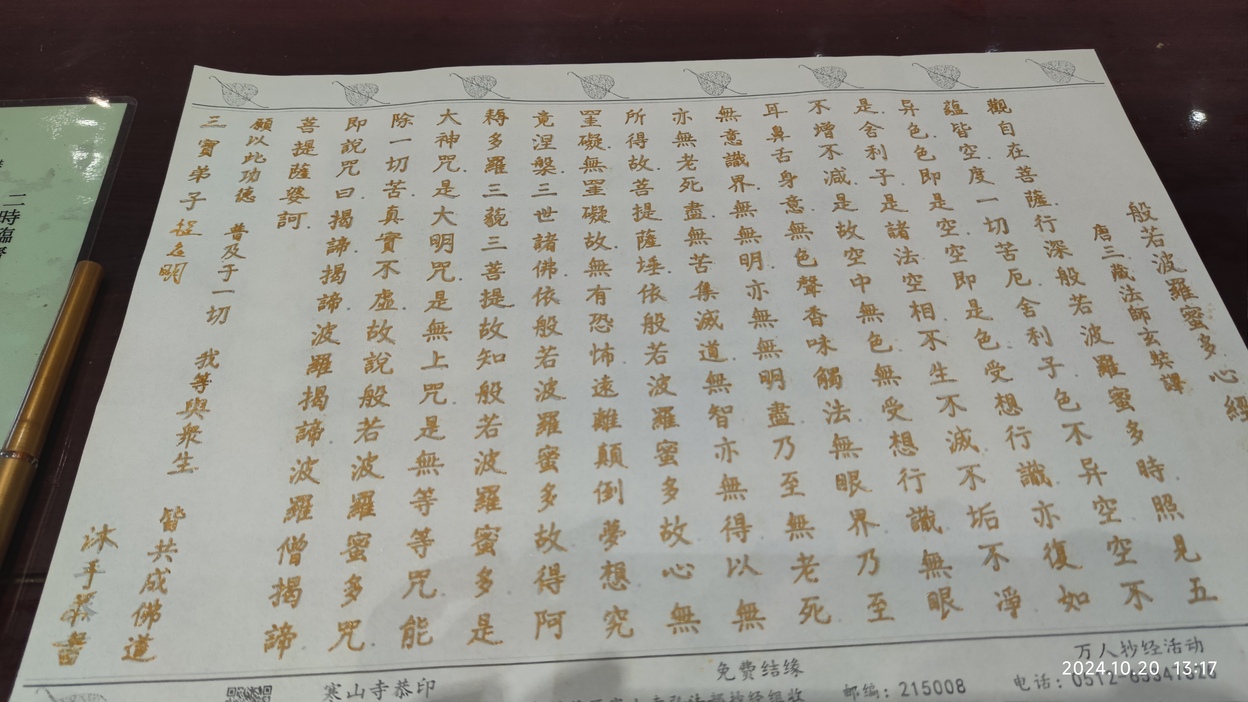 般若波羅蜜多心經
唐三藏法師玄奘譯
觀自在菩薩.行深般若波羅蜜多時.照見五
蘊皆空.度一切苦厄.舍利子.色不异空.空不
异色.色即是空.空即是色.受想行識.亦復如
是.舍利子.是諸法空相.不生不滅.不垢不淨.
不增不減.是故空中無色.無受想行識.無眼
耳鼻舌身意.無色聲香味觸法.無眼界.乃至
無意識界.無無明.亦無無明盡.乃至無老死.
亦無老死盡.無苦集滅道.無智亦無得.以無
所得故.菩提薩埵.依般若波羅蜜多故.心無
罣礙.無罣礙故.無有恐怖.遠離顛倒夢想.究
竟涅槃.三世諸佛.依般若波羅蜜多故.得阿
耨多羅三藐三菩提.故知般若波羅蜜多.是
大神咒.是大明咒.是無上咒.是無等等咒.能
除一切苦.真實不虛.故說般若波羅蜜多咒.
即說咒曰.揭諦揭諦.波羅揭諦.波羅僧揭諦.
菩提薩婆訶.
願以此功德 普及于一切 我等與眾生 皆共成佛道
三寶弟子 沐手恭書
万人抄经活动
免费结缘
寒山寺恭印
邮编：215008
电话：
二時臨
2024.10.20 13:17